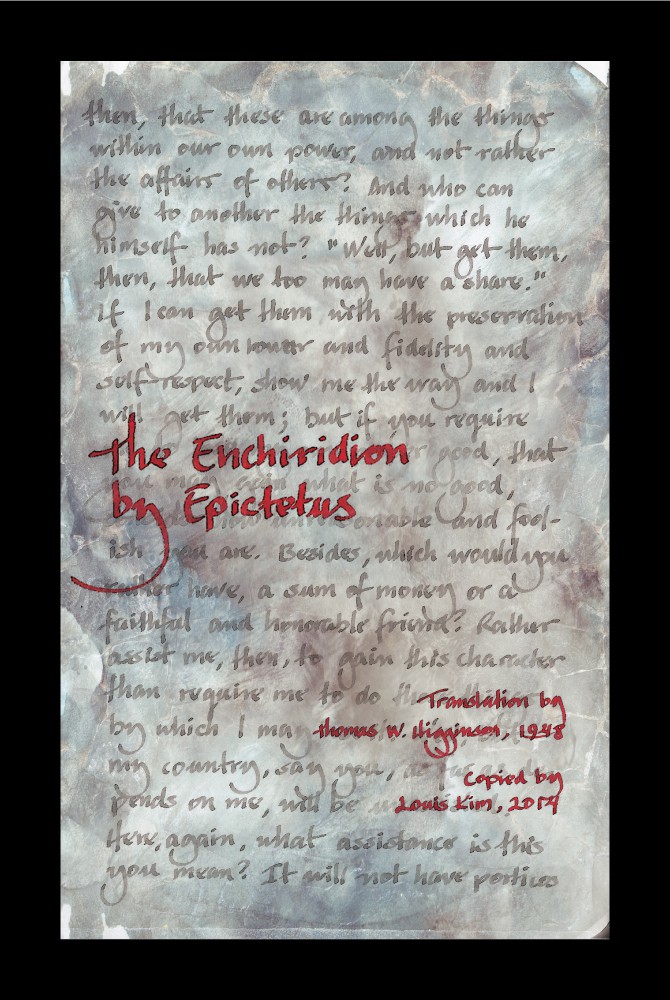 then, that these are among the things
within our own power, and not rather
the affairs of others? And who can
give to another the things which he
himself has not? "Well, but get them,
then, that we too may have a share."
If I can get them with the preservation
of my own honor and fidelity and
self-respect, show me the way and I
will get them; but if you require
good, that
what is no good,
and fool-
ish you are. Besides, which would you
rather have, a sum of money or a
faithful and honorable friend? Rather
assist me, then, to gain this character
than require me to do
by which I may
my country, say you, as
pends on me, will be
Here, again, what assistance is this
you mean? It will not have porticos
The Enchiridion
by Epictetus
Translation by
Thomas W. Higginson, 1948
Copied by
Louis Kim,